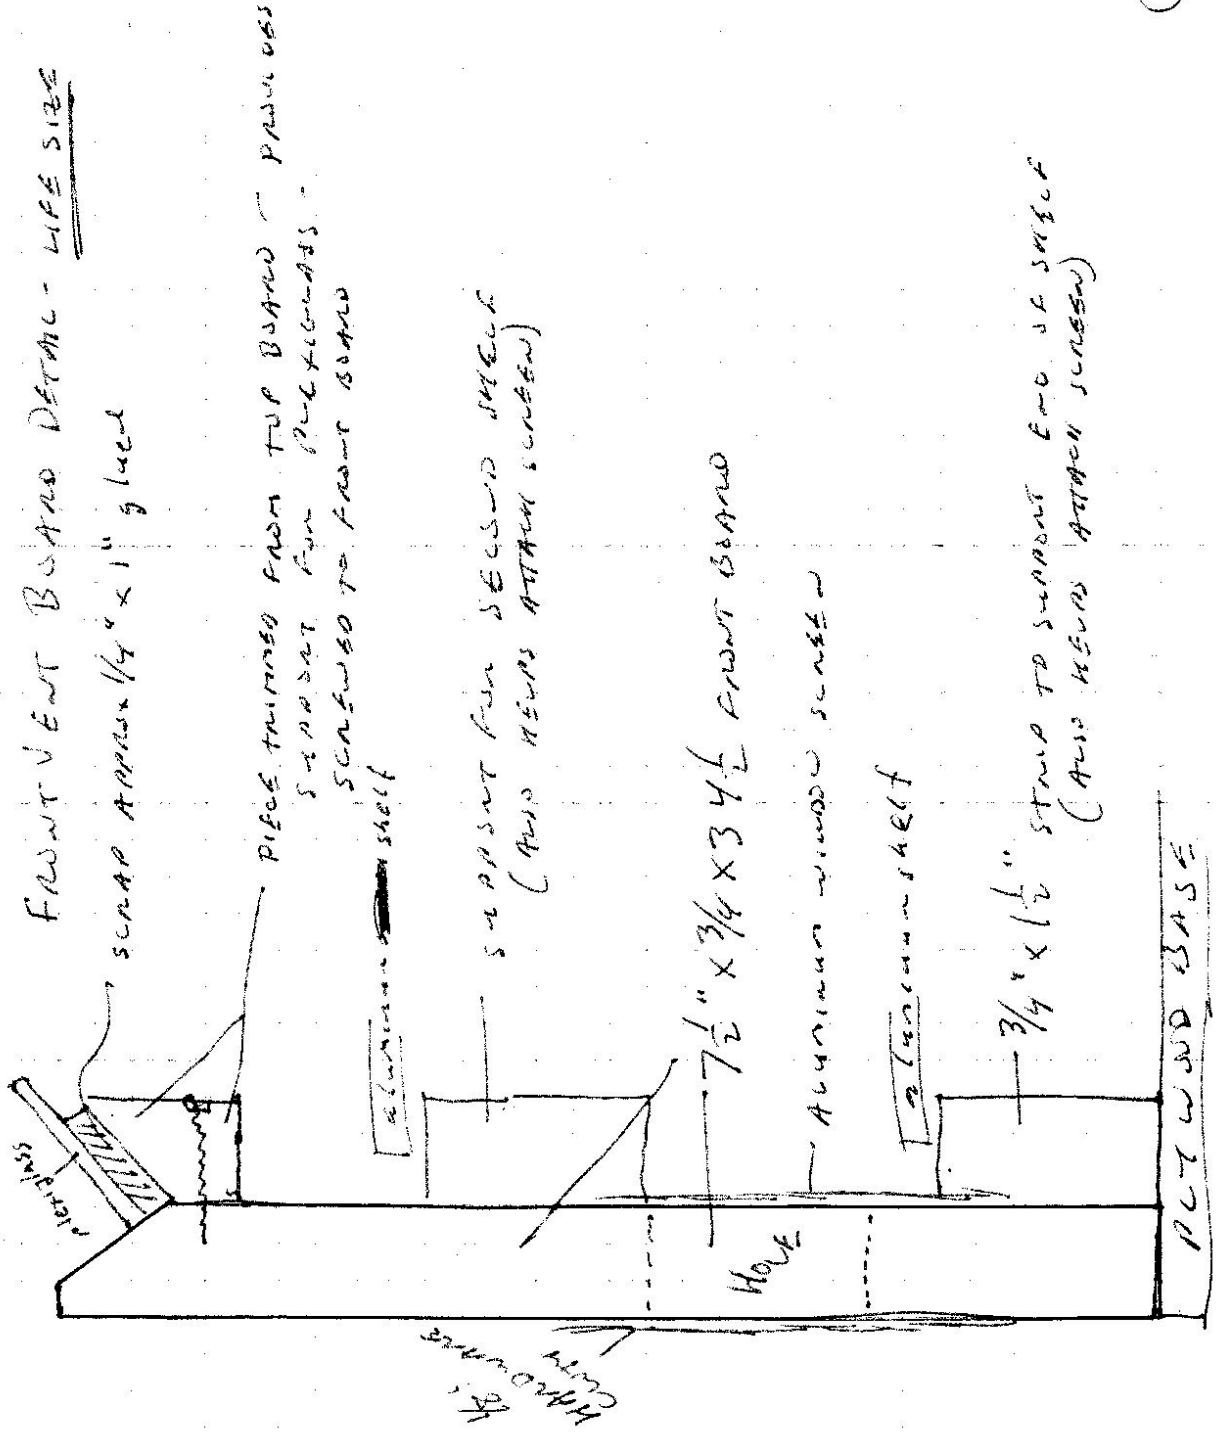 FRONT VENT BOARD DETAIL - LIFE SIZE
SCRAP APPROX 1/4" x 1" glued
plexiglass
PIECE TRIMMED FROM TOP BOARD - PROVIDES
SUPPORT FOR PLEXIGLASS -
SCREWED TO FRONT BOARD
aluminum shelf
SUPPORT FOR SECOND SHELF
(ALSO HELPS ATTACH SCREEN)
7 1/2" x 3/4 x 34 1/2 FRONT BOARD
HOLE
HARDWARE
CLOTH
ALUMINUM WINDOW SCREEN
aluminum shelf
3/4" x 1 1/2" STRIP TO SUPPORT END OF SHELF
(ALSO HELPS ATTACH SCREEN)
PLYWOOD BASE